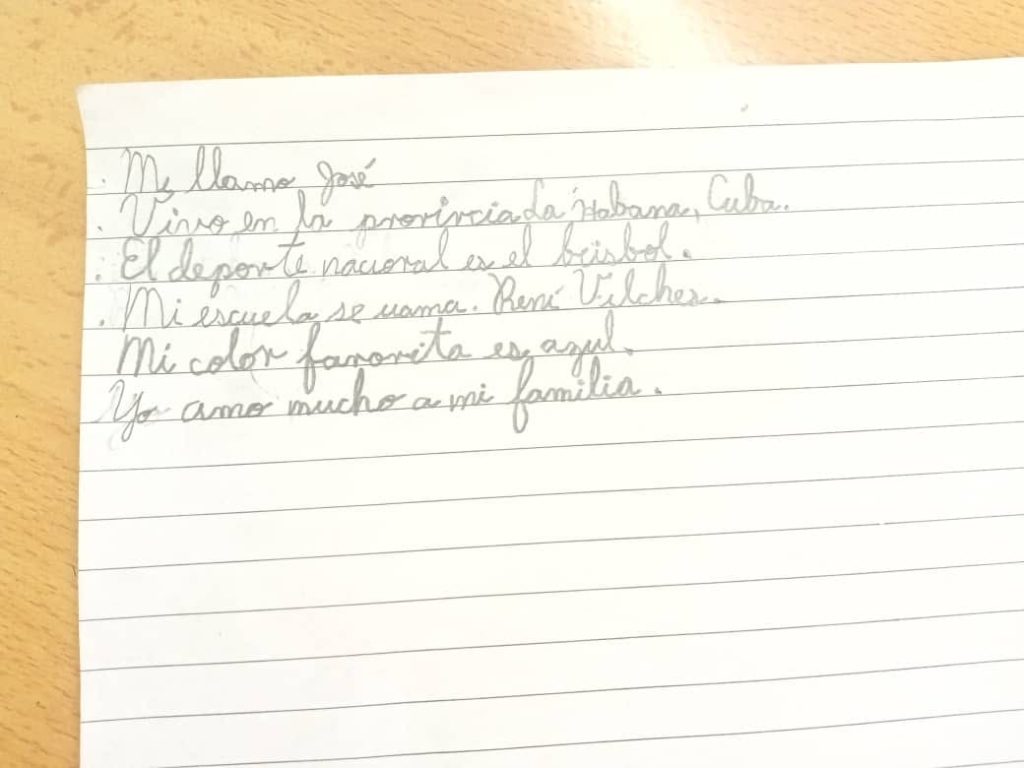 . Me llamo José
. Vivo en la provincia La Habana, Cuba.
. El deporte nacional es el beisbol.
. Mi escuela se uama. René Vilches.
Mi color favorita es azul.
Yo amo mucho a mi familia.